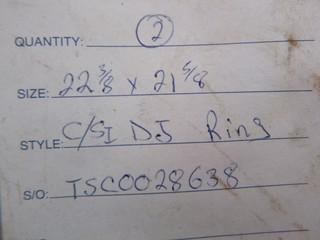 QUANTITY: 2
SIZE: 22 3/8 x 21 5/8
STYLE: C/SI DJ Ring
S/O: TSC0028638